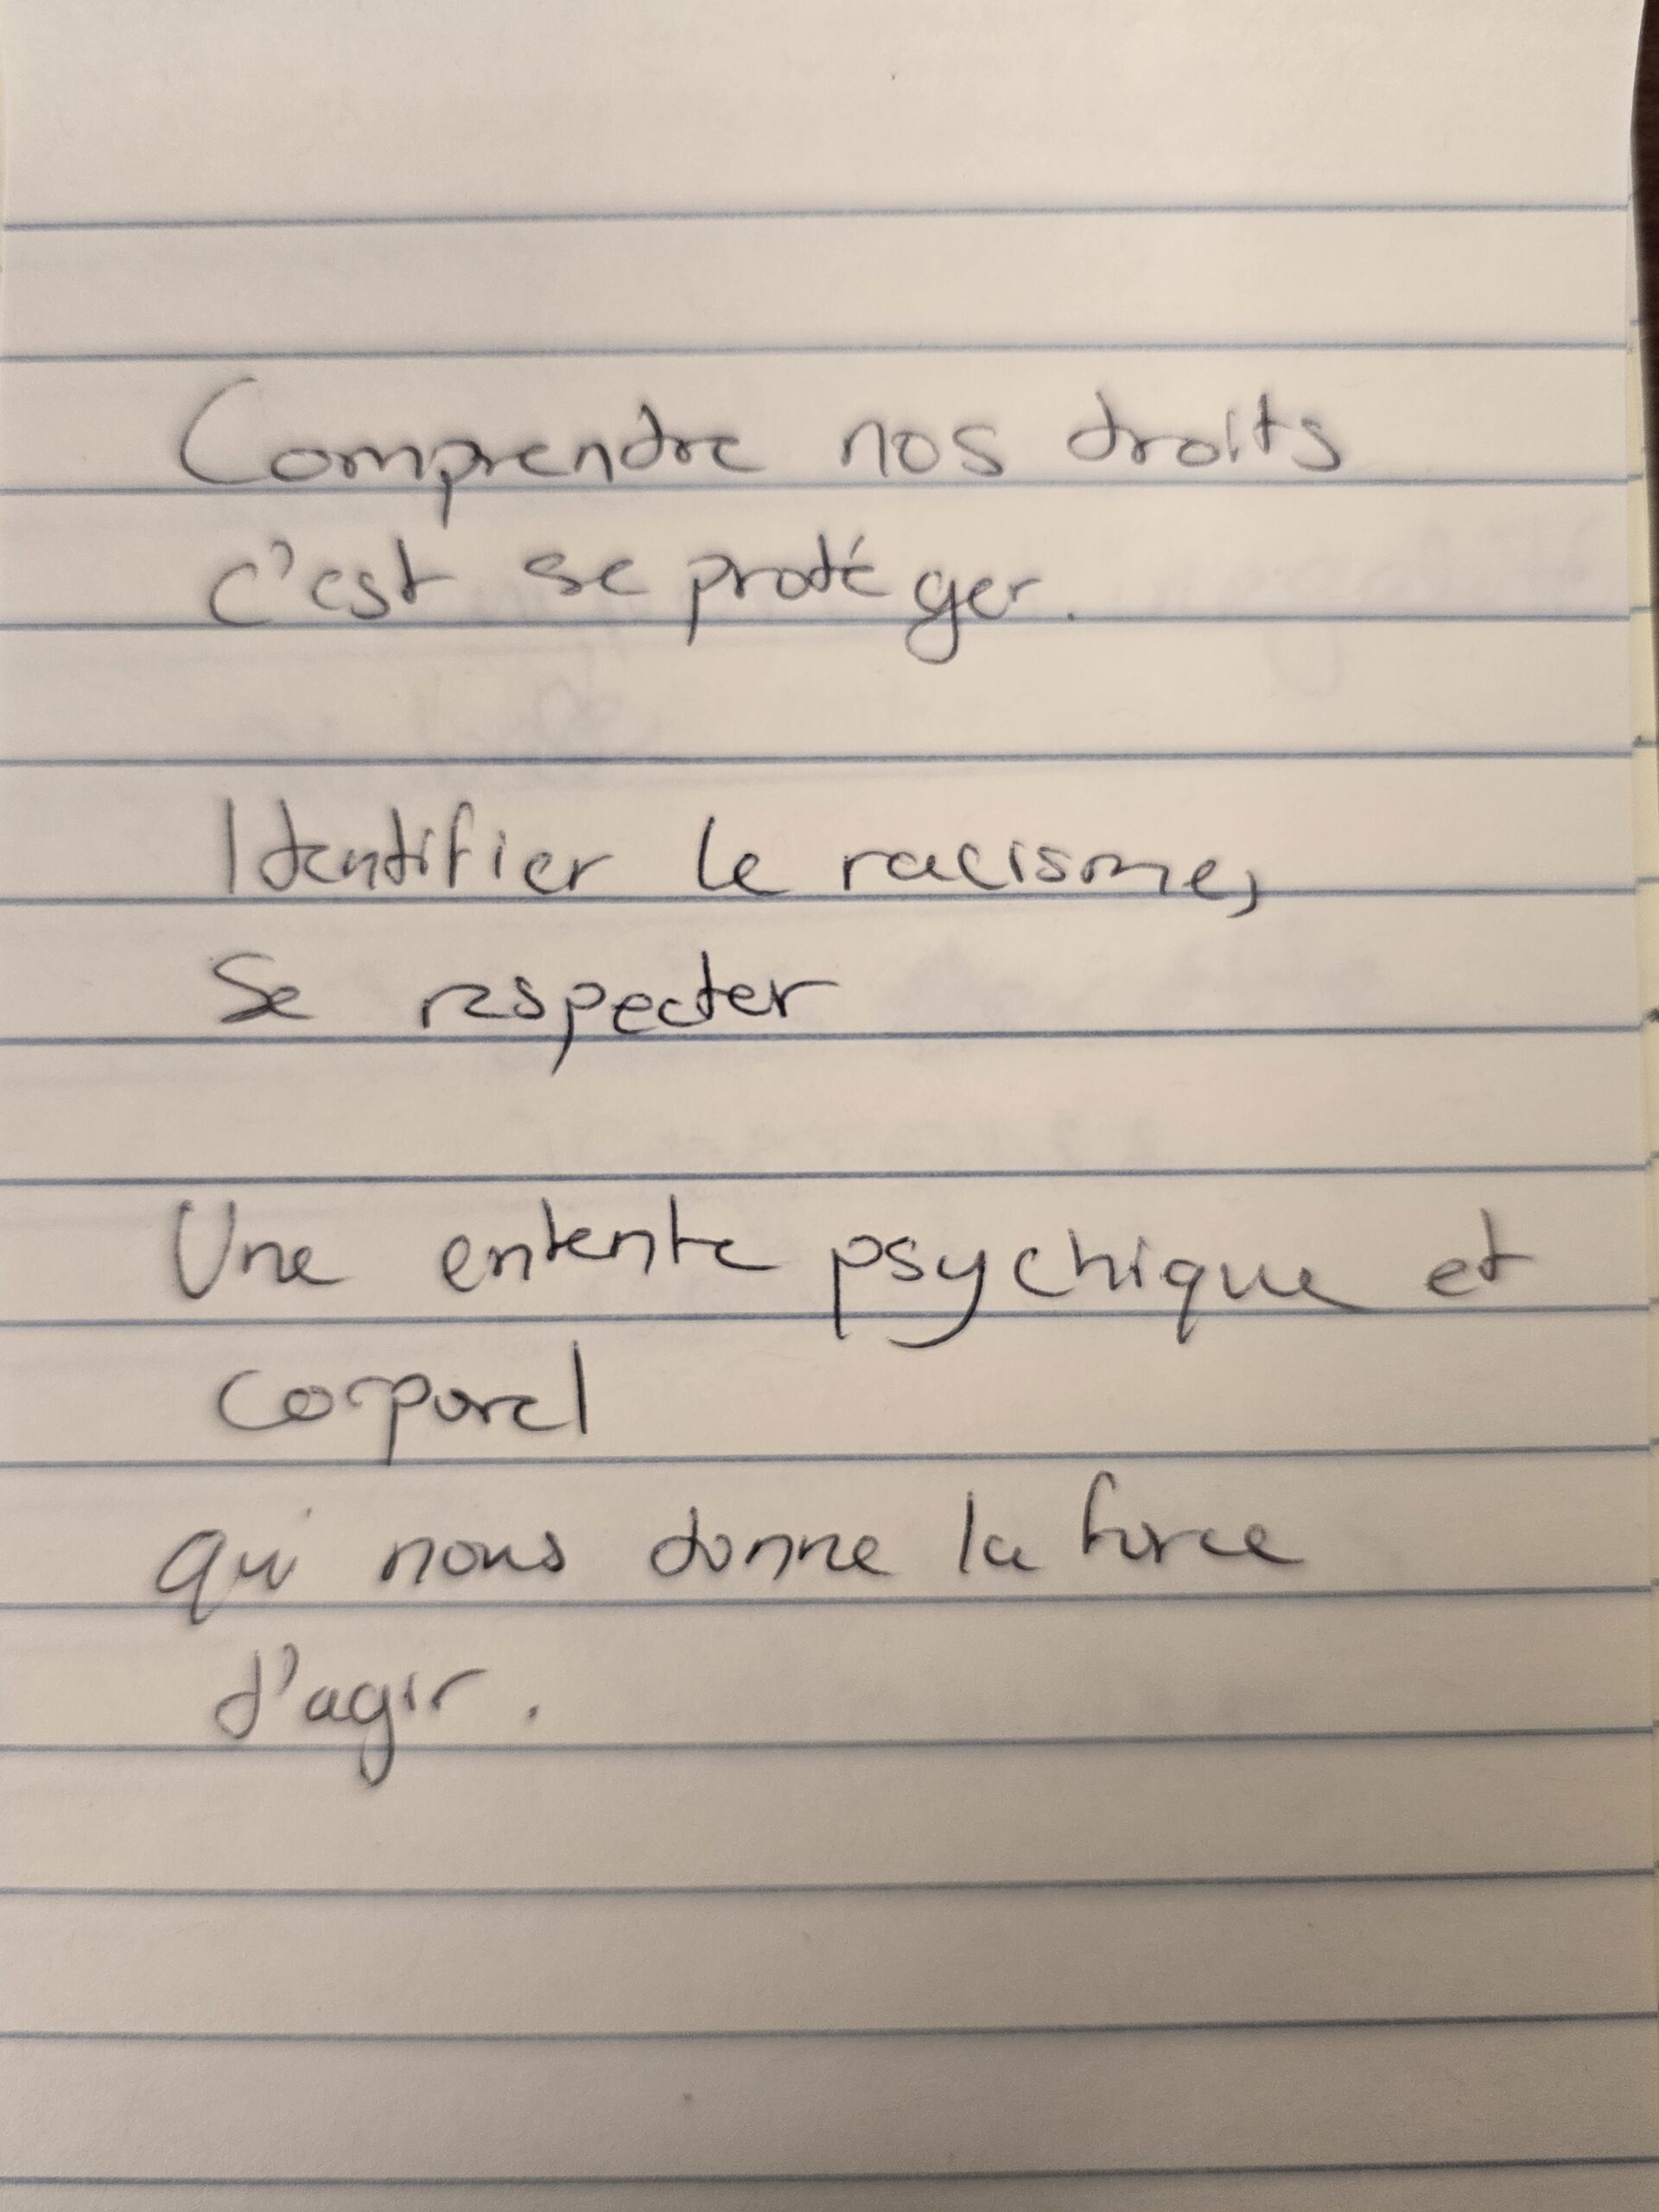 Comprendre nos droits
c'est se protéger.
Identifier le racisme,
Se respecter
Une entente psychique et
corporel
qui nous donne la force
d'agir.